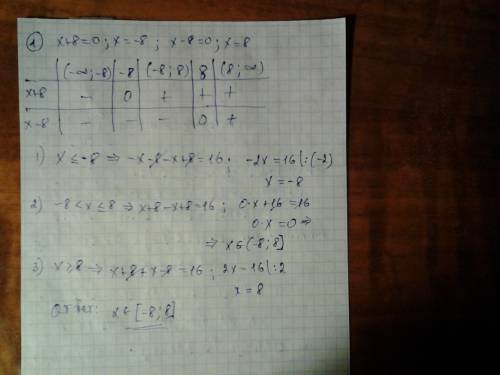 1 x+8=0; x=-8; x-8=0; x=8
(-∞;-8) -8 (-8;8) 8 (8;∞)
x+8 - 0 + + +
x-8 - - - 0 +
1) x≤-8 ⇒ -x-8-x+8=16; -2x=16|:(-2)
x=-8
2) -8<x≤8 ⇒ x+8-x+8=16; 0·x+16=16
0·x=0 ⇒
⇒ x∈(-8;8]
3) x≥8 ⇒ x+8+x-8=16; 2x=16|:2
x=8
Ответ: x∈[-8;8]